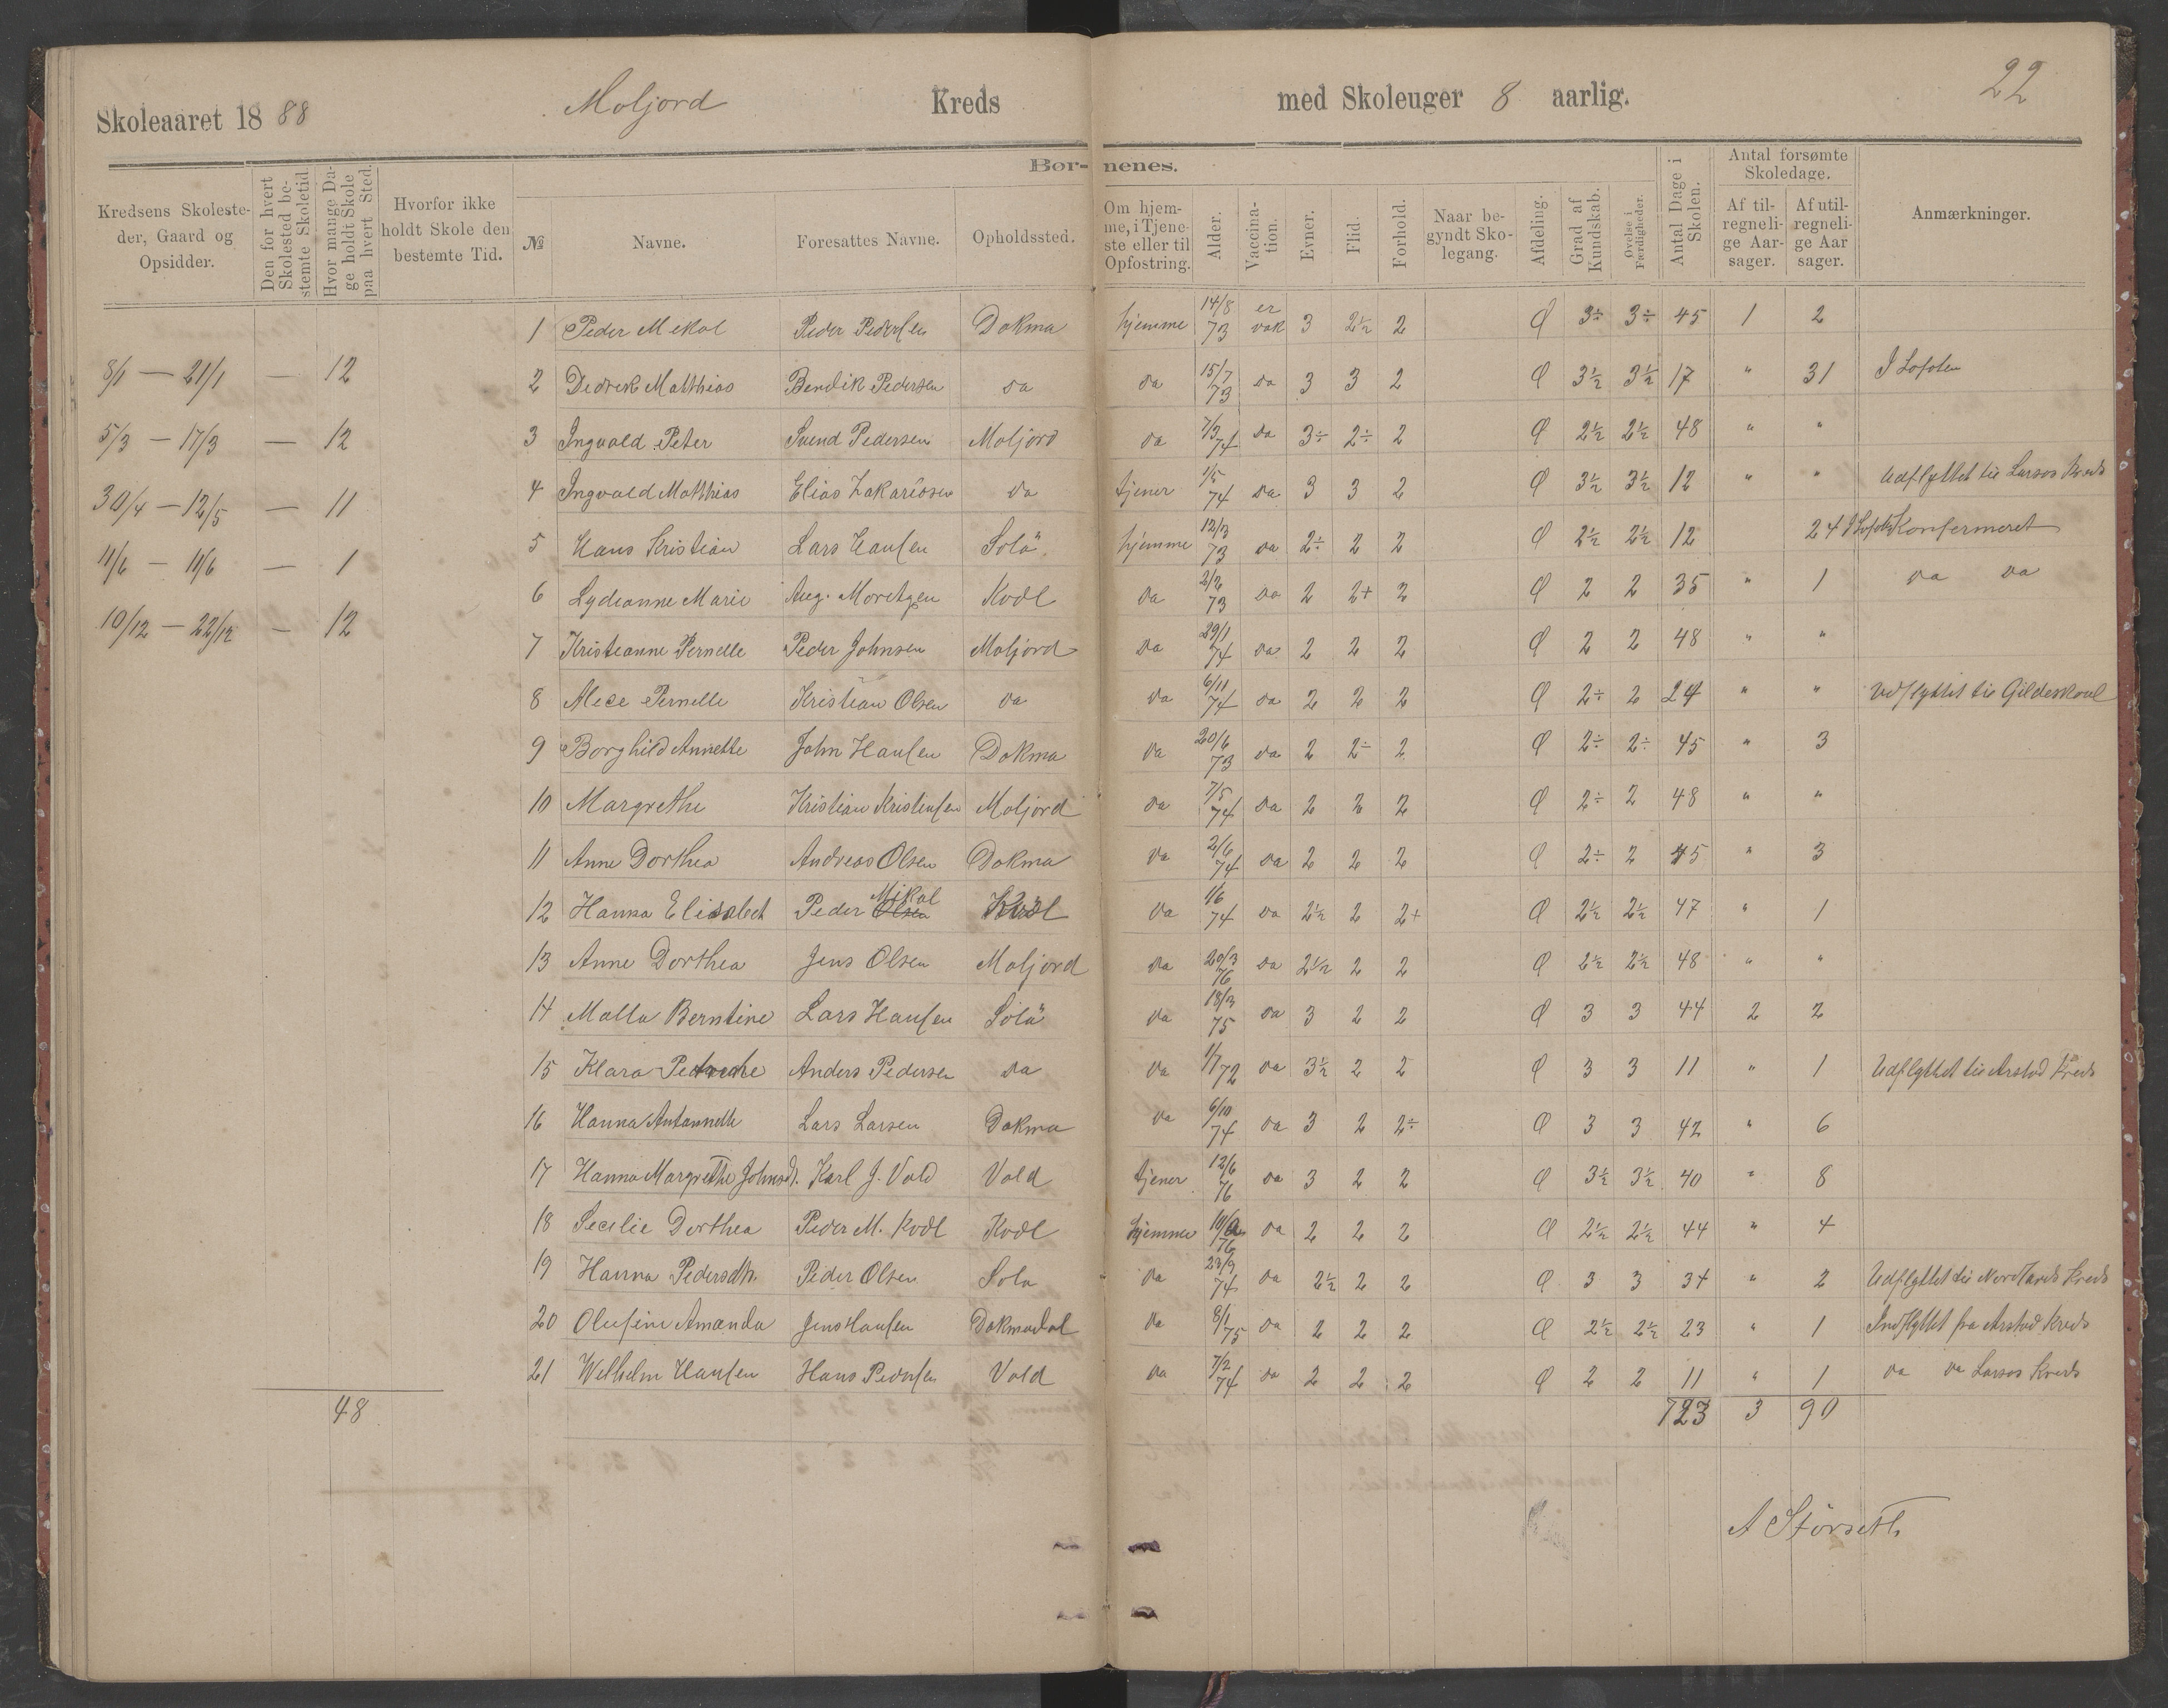 22
Skoleaaret 1888 Moljord Kreds med Skoleuger 8 aarlig.
Bør- nenes.
Kredsens Skoleste-
der, Gaard og
Opsidder.
Den for hvert
Skolested be-
stemte Skoletid.
Hvor mange Da-
ge holdt Skole
paa hvert Sted.
Hvorfor ikke
holdt Skole den
bestemte Tid.
№
Navne.
Foresattes Navne.
Opholdssted.
Om hjem-
me, i Tjene-
ste eller til
Opfostring.
Alder.
Vaccina-
tion.
Evner.
Flid.
Forhold.
Naar be-
gyndt Sko-
legang.
Afdeling.
Grad af
Kundskab.
Øvelse i
Færdigheder.
Antal Dage i
Skolen.
Antal forsømte
Skoledage.
Af til-
regneli-
ge Aar-
sager.
Af util-
regneli-
ge Aar
sager.
Anmærkninger.
8/1 — 21/1 — 12
5/3 — 17/3 — 12
30/4 — 12/5 — 11
11/6 — 11/6 — 1
10/12 — 22/12 — 12
48
1 Peder Mekal Peder Pedersen Dokma hjemme 14/8 73 er vak 3 2½ 2 Ø 3÷ 3÷ 45 1 2
2 Dedrek Matthias Bendik Pedersen da da 15/7 73 da 3 3 2 Ø 3½ 3½ 17 " 31 I Lofoten
3 Ingvald Peter Svend Pedersen Moljord da 7/3 74 da 3÷ 2÷ 2 Ø 2½ 2½ 48 " "
4 Ingvald Matthias Elias Zakariasen da tjener 1/5 74 da 3 3 2 Ø 3½ 3½ 12 " " Udflyttet til Larsos Kreds
5 Hans Kristian Lars Hansen Solä hjemme 12/3 73 da 2÷ 2 2 Ø 2½ 2½ 12 24 I Lofoten Konfermeret
6 Lydeanne Marie Aug. Moretzen Kvdl da 2/2 73 da 2 2+ 2 Ø 2 2 35 " 1 da da
7 Kristeanne Pernelle Peder Johnsen Moljord da 29/1 74 da 2 2 2 Ø 2 2 48 " "
8 Alece Pernelle Kristian Olsen da da 6/11 74 da 2 2 2 Ø 2÷ 2 24 " " Udflyttet til Gildeskaal
9 Borghild Annette John Hansen Dokma da 20/6 73 da 2 2÷ 2 Ø 2÷ 2÷ 45 " 3
10 Margrethe Kristian Kristensen Moljord da 7/5 74 da 2 2 2 Ø 2÷ 2 48 " "
11 Anne Dorthea Andreas Olsen Dokma da 2/6 74 da 2 2 2 Ø 2÷ 2 45 " 3
12 Hanna Elisabet Peder Olsen Mikal Kvdl da 1/6 74 da 2½ 2 2+ Ø 2½ 2½ 47 " 1
13 Anne Dorthea Jens Olsen Moljord da 20/3 76 da 2½ 2 2 Ø 2½ 2½ 48 " "
14 Malla Berntine Lars Hansen Solä da 18/3 75 da 3 2 2 Ø 3 3 44 2 2
15 Klara Anders Pedersen da da 1/7 72 da 3½ 2 2 Ø 3 3 11 " 1 Udflyttet til Arstad Kreds
16 Hanna Antannette Lars Larsen Dokma da 6/10 74 da 3 2 2÷ Ø 3 3 42 " 6
17 Hanna Margrethe Johnsd. Karl J. Vold Vold tjener 12/6 76 da 3 2 2 Ø 3½ 3½ 40 " 8
18 Secelie Dorthea Peder M. Kvdl Kvdl hjemme 76 da 2 2 2 Ø 2½ 2½ 44 " 4
19 Hanna Pedersdtr. Peder Olsen Sola da 23/9 74 da 2½ 2 2 Ø 3 3 34 " 2 Udflyttet til Kreds
20 Olufine Amanda Jens Hansen Dokmadal da 8/1 75 da 2 2 2 Ø 2½ 2½ 23 " 1 Indflyttet fra Arstad Kreds
21 Welhelm Hansen Hans Pedersen Vold da 7/2 74 da 2 2 2 Ø 2 2 11 " 1 da da Larsos Kreds
723 3 90
A Størseth